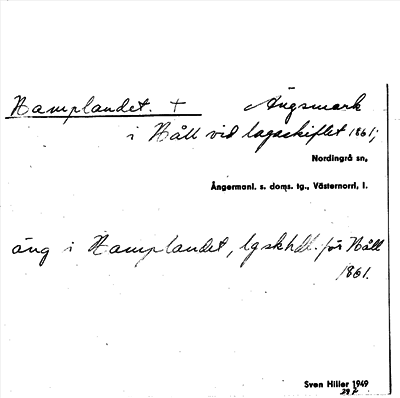 Hamplandet. + Ängsmark
i Häll vid lagaskiftet 1861;
Nordingrå sn,
Ångermanl. s. doms. tg., Västernorrl, l.
äng i Hamplandet, lgskhdl. för Häll
1861.
Sven Hiller 1949